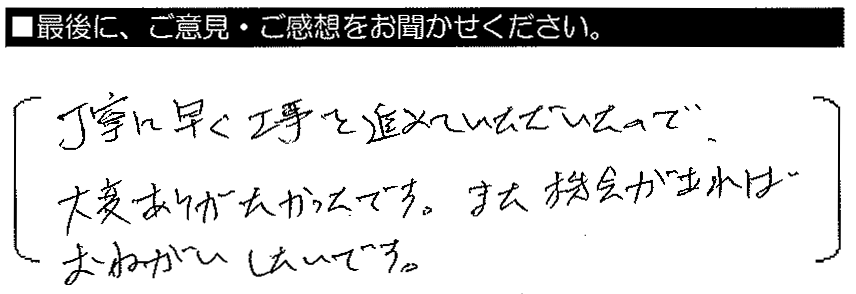 ■最後に、ご意見・ご感想をお聞かせください。
丁寧に早く工事を進めていただいたので、
大変ありがたかったです。また機会があれば
おねがいしたいです。